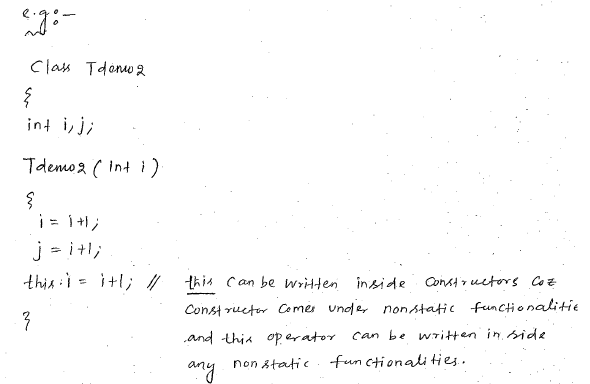 e.g:-
Class Tdemo2
{
int i,j;
Tdemo2 ( int i )
{
i = i+1;
j = i+1;
this.i = i+1; // this can be written inside constructors coz
constructor comes under nonstatic functionalitie
and this operator can be written inside
any nonstatic functionalities.
}